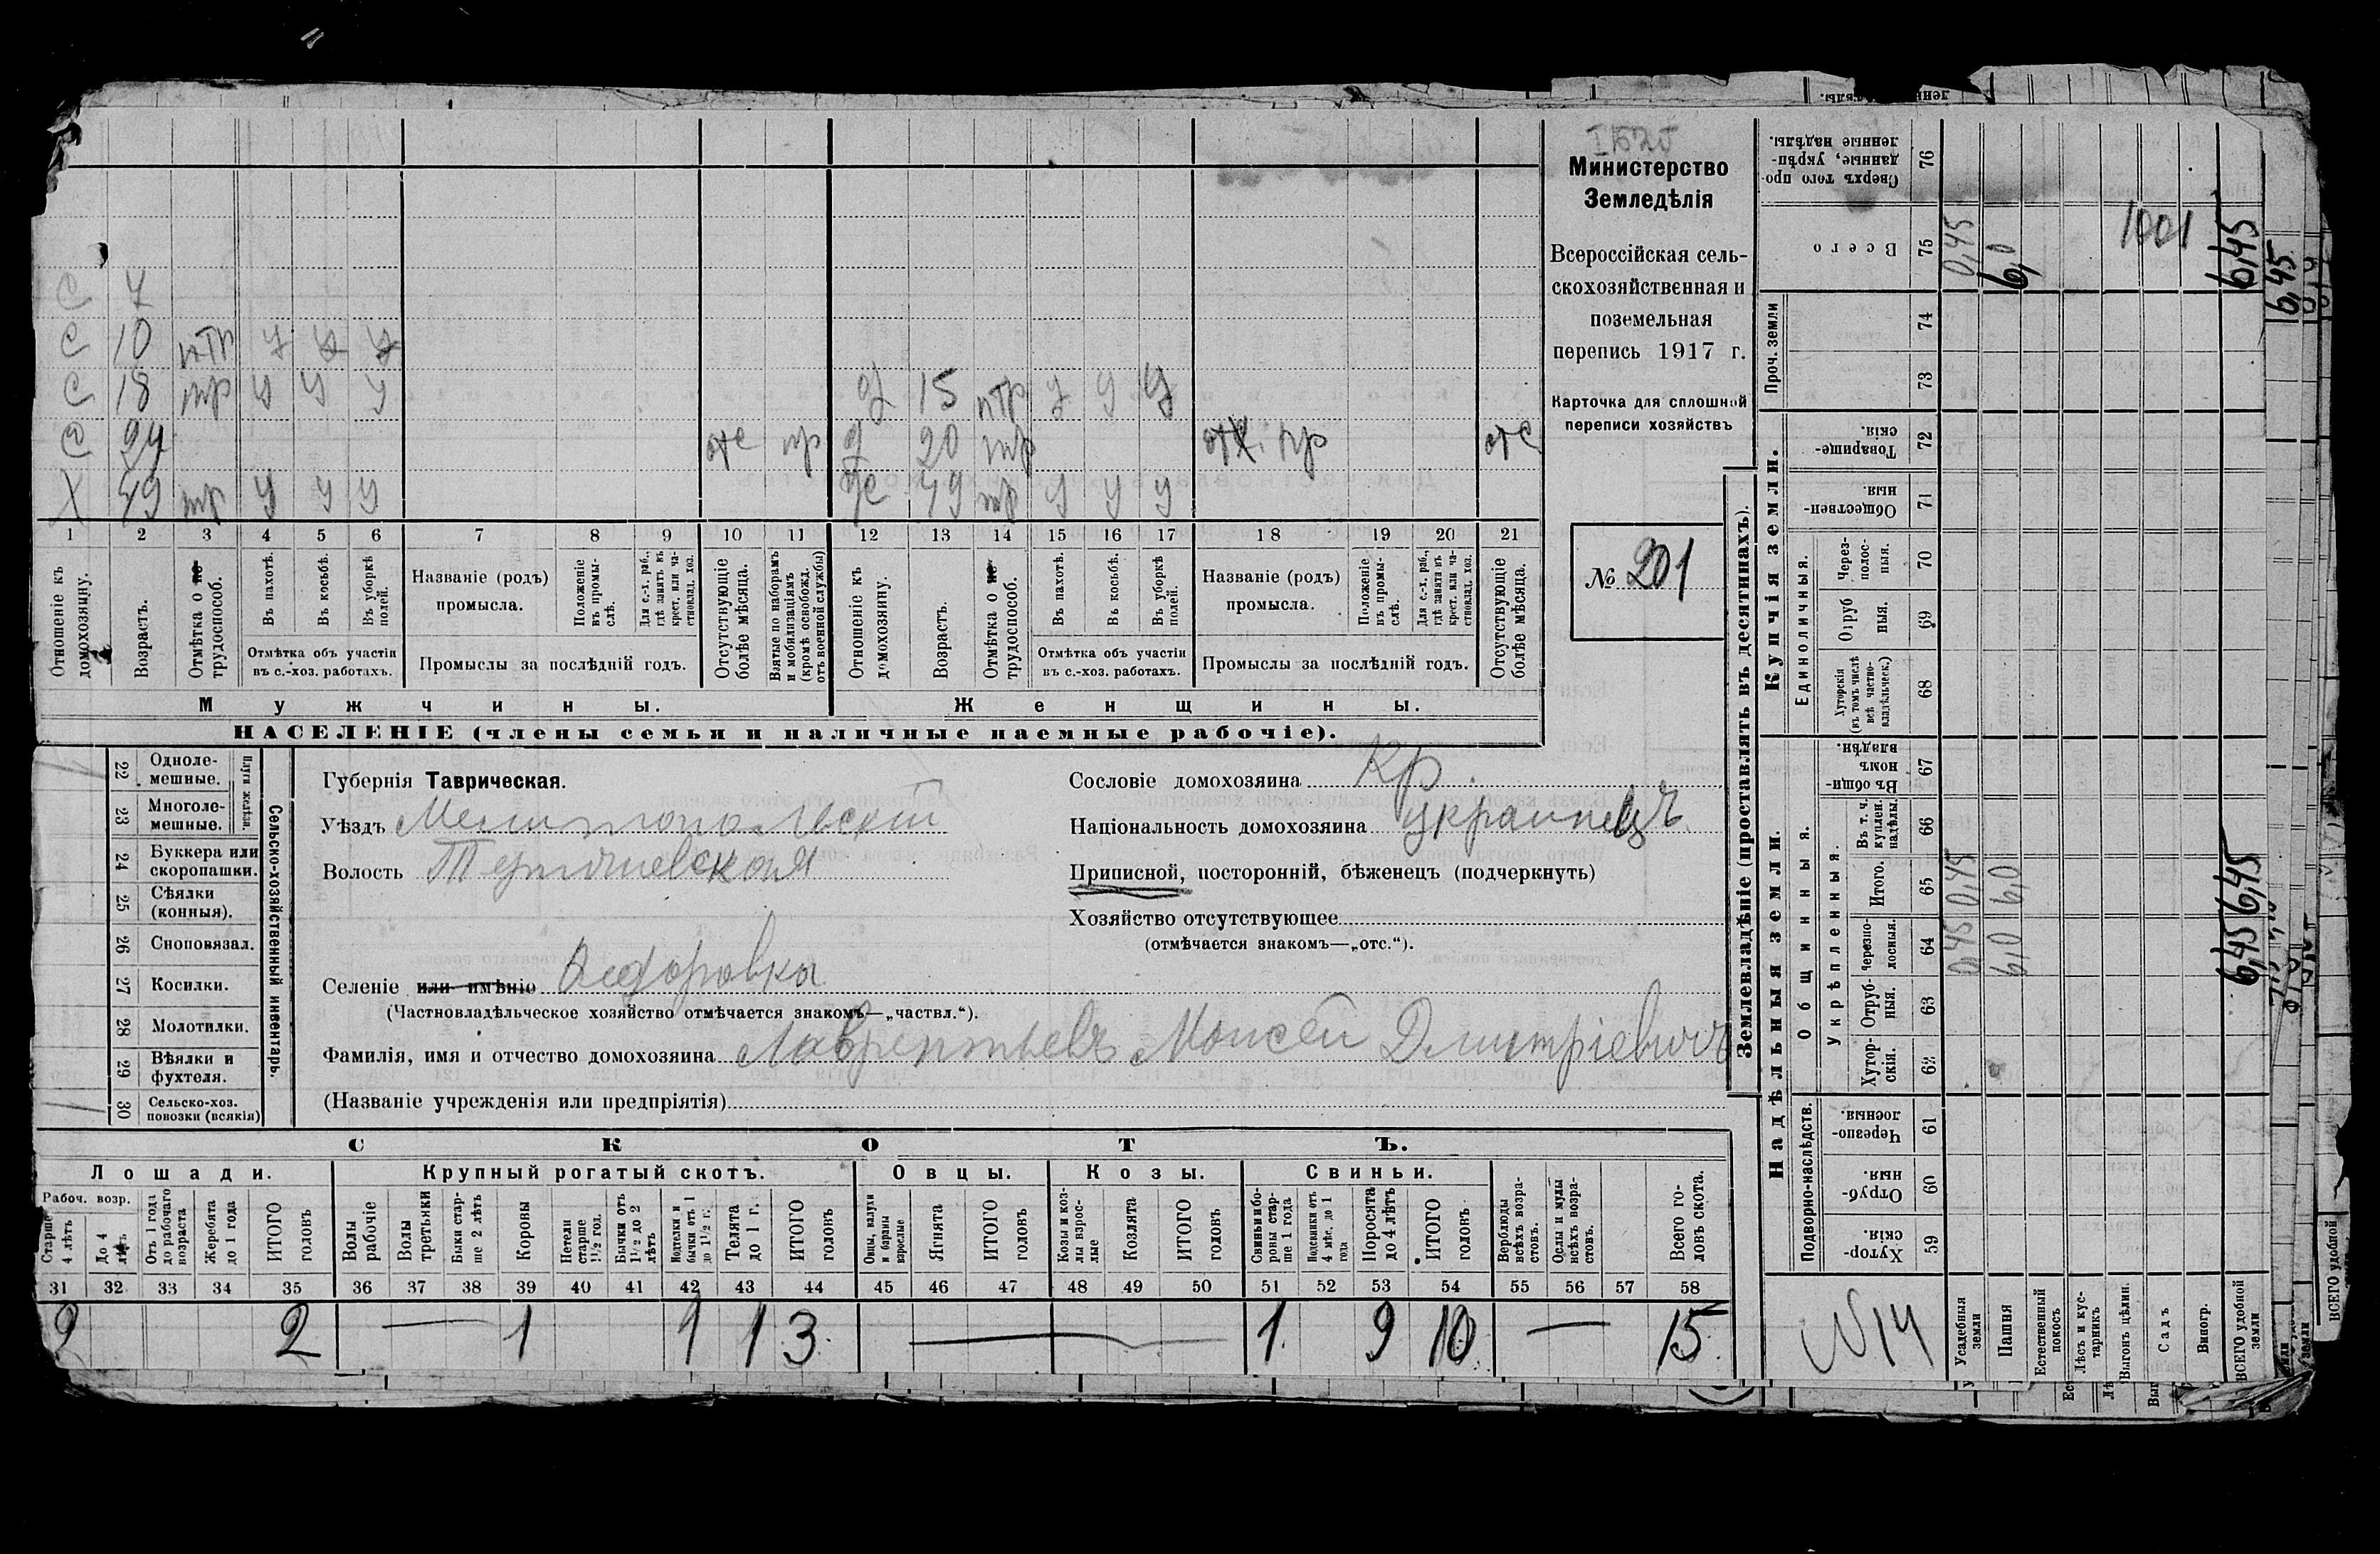 Министерство
Земледѣлія
Всероссійская сель-
скохозяйственная и
поземельная
перепись 1917 г.
Карточка для сплошной
переписи хозяйствъ
№ 201
С 7
С 10 птр у у у
С 18 тр у у у д 15 птр у у у
С 24 отс пр д 20 тр пр отс
Х 49 тр у у у ж 49 тр у у у
1 2 3 4 5 6 7 8 9 10 11 12 13 14 15 16 17 18 19 20 21
Отношеніе къ домохозяину.
Возрастъ.
Отмѣтка о не трудоспособ.
Въ пахотѣ.
Въ косьбѣ.
Въ уборкѣ полей.
Отмѣтка объ участіи
въ с.-хоз. работахъ.
Названіе (родъ)
промысла.
Положеніе въ промы-слѣ.
Для с.-х. раб., гдѣ занятъ въ крест. или ча-стновлад. хоз.
Промыслы за послѣдній годъ.
Отсутствующіе болѣе мѣсяца.
Взятые по наборамъ и мобилизаціямъ (кромѣ освобожд. отъ военной службы)
Отношеніе къ домохозяину.
Возрастъ.
Отмѣтка о не трудоспособ.
Въ пахотѣ.
Въ косьбѣ.
Въ уборкѣ полей.
Отмѣтка объ участіи
въ с.-хоз. работахъ.
Названіе (родъ)
промысла.
Положеніе въ промы-слѣ.
Для с.-х. раб., гдѣ занята въ крест. или ча-стновлад. хоз.
Промыслы за послѣдній годъ.
Отсутствующіе болѣе мѣсяца.
Мужчины. Женщины.
НАСЕЛЕНІЕ (члены семьи и наличные наемные рабочіе).
Сельско-хозяйственный инвентарь.
Плуги желѣзн.
22 Однолемешные.
23 Многолемешные.
24 Буккера или скоропашки.
25 Сѣялки (конныя).
26 Сноповязал.
27 Косилки.
28 Молотилки.
29 Вѣялки и фухтеля.
30 Сельско-хоз. повозки (всякія)
Губернія Таврическая.
Уѣздъ Мелитопольскій
Волость
Селеніе или имѣніо
(Частновладѣльческое хозяйство отмѣчается знакомъ—„частвл.“).
Сословіе домохозяина Кр.
Національность домохозяина украинецъ
Приписной, посторонній, бѣженецъ (подчеркнуть)
Хозяйство отсутствующее
(отмѣчается знакомъ—„отс.“).
Фамилія, имя и отчество домохозяина Лаврентьевъ Моисей Дмитріевичъ
(Названіе учрежденія или предпріятія)
СКОТЪ.
Лошади. Крупный рогатый скотъ. Овцы. Козы. Свиньи.
Рабоч. возр.
Старше 4 лѣтъ
До 4 лѣтъ
Отъ 1 года до рабочаго возраста
Жеребята до 1 года
ИТОГО головъ
Волы рабочіе
Волы третьяки
Быки стар-ше 2 лѣтъ
Коровы
Нетели старше 1½ год.
Бычки отъ 1½ до 2 лѣтъ
Подтелки и бычки отъ 1 до 1½ г.
Телята до 1 г.
ИТОГО головъ
Овцы, валухи и бараны взрослые
Ягнята
ИТОГО головъ
Козы и коз-лы взрос-лые
Козлята
ИТОГО головъ
Свиньи и бо-ровы стар-ше 1 года
Подсвинки отъ 4 мѣс. до 1 года
Поросята до 4 лѣтъ
ИТОГО головъ
Верблюды всѣхъ возра-стовъ.
Ослы и мулы всѣхъ возра-стовъ.
Всего го-ловъ скота.
31 32 33 34 35 36 37 38 39 40 41 42 43 44 45 46 47 48 49 50 51 52 53 54 55 56 57 58
2 2 — 1 1 1 3 — 1 9 10 — 15
Землевладѣніе (проставлять въ десятинахъ).
Надѣльныя земли. Купчія земли. Проч. земли
Подворно-наслѣдств. Общинныя. Единоличныя.
Укрѣпленныя.
Хутор-скія. 59
Отруб-ныя. 60
Черезпо-лосныя. 61
Хутор-скія. 62
Отруб-ныя. 63
Черезпо-лосныя. 64
Итого. 65
Въ т. ч. куплен. надѣлы. 66
Въ общи номъ владѣн. 67
Хуторскія (въ томъ числѣ всѣ частно-владѣльческ.) 68
Отруб ныя. 69
Через-полос-ныя. 70
Обществен-ныя. 71
Товарище-скія. 72
73
74
Всего 75
Сверхъ того про-данные, укрѣп-ленные надѣлы. 76
Усадебныя земли 0,45 0,45 0,45
Пашня 6,0 6,0 6,0
Естественный покосъ
Лѣсъ и кус-тарникъ
Выгонъ цѣлин.
Садъ
Виногр.
ВСЕГО удобной земли 6,45 6,45 6,45
1001
6,45
№14
ВСЕГО удобной